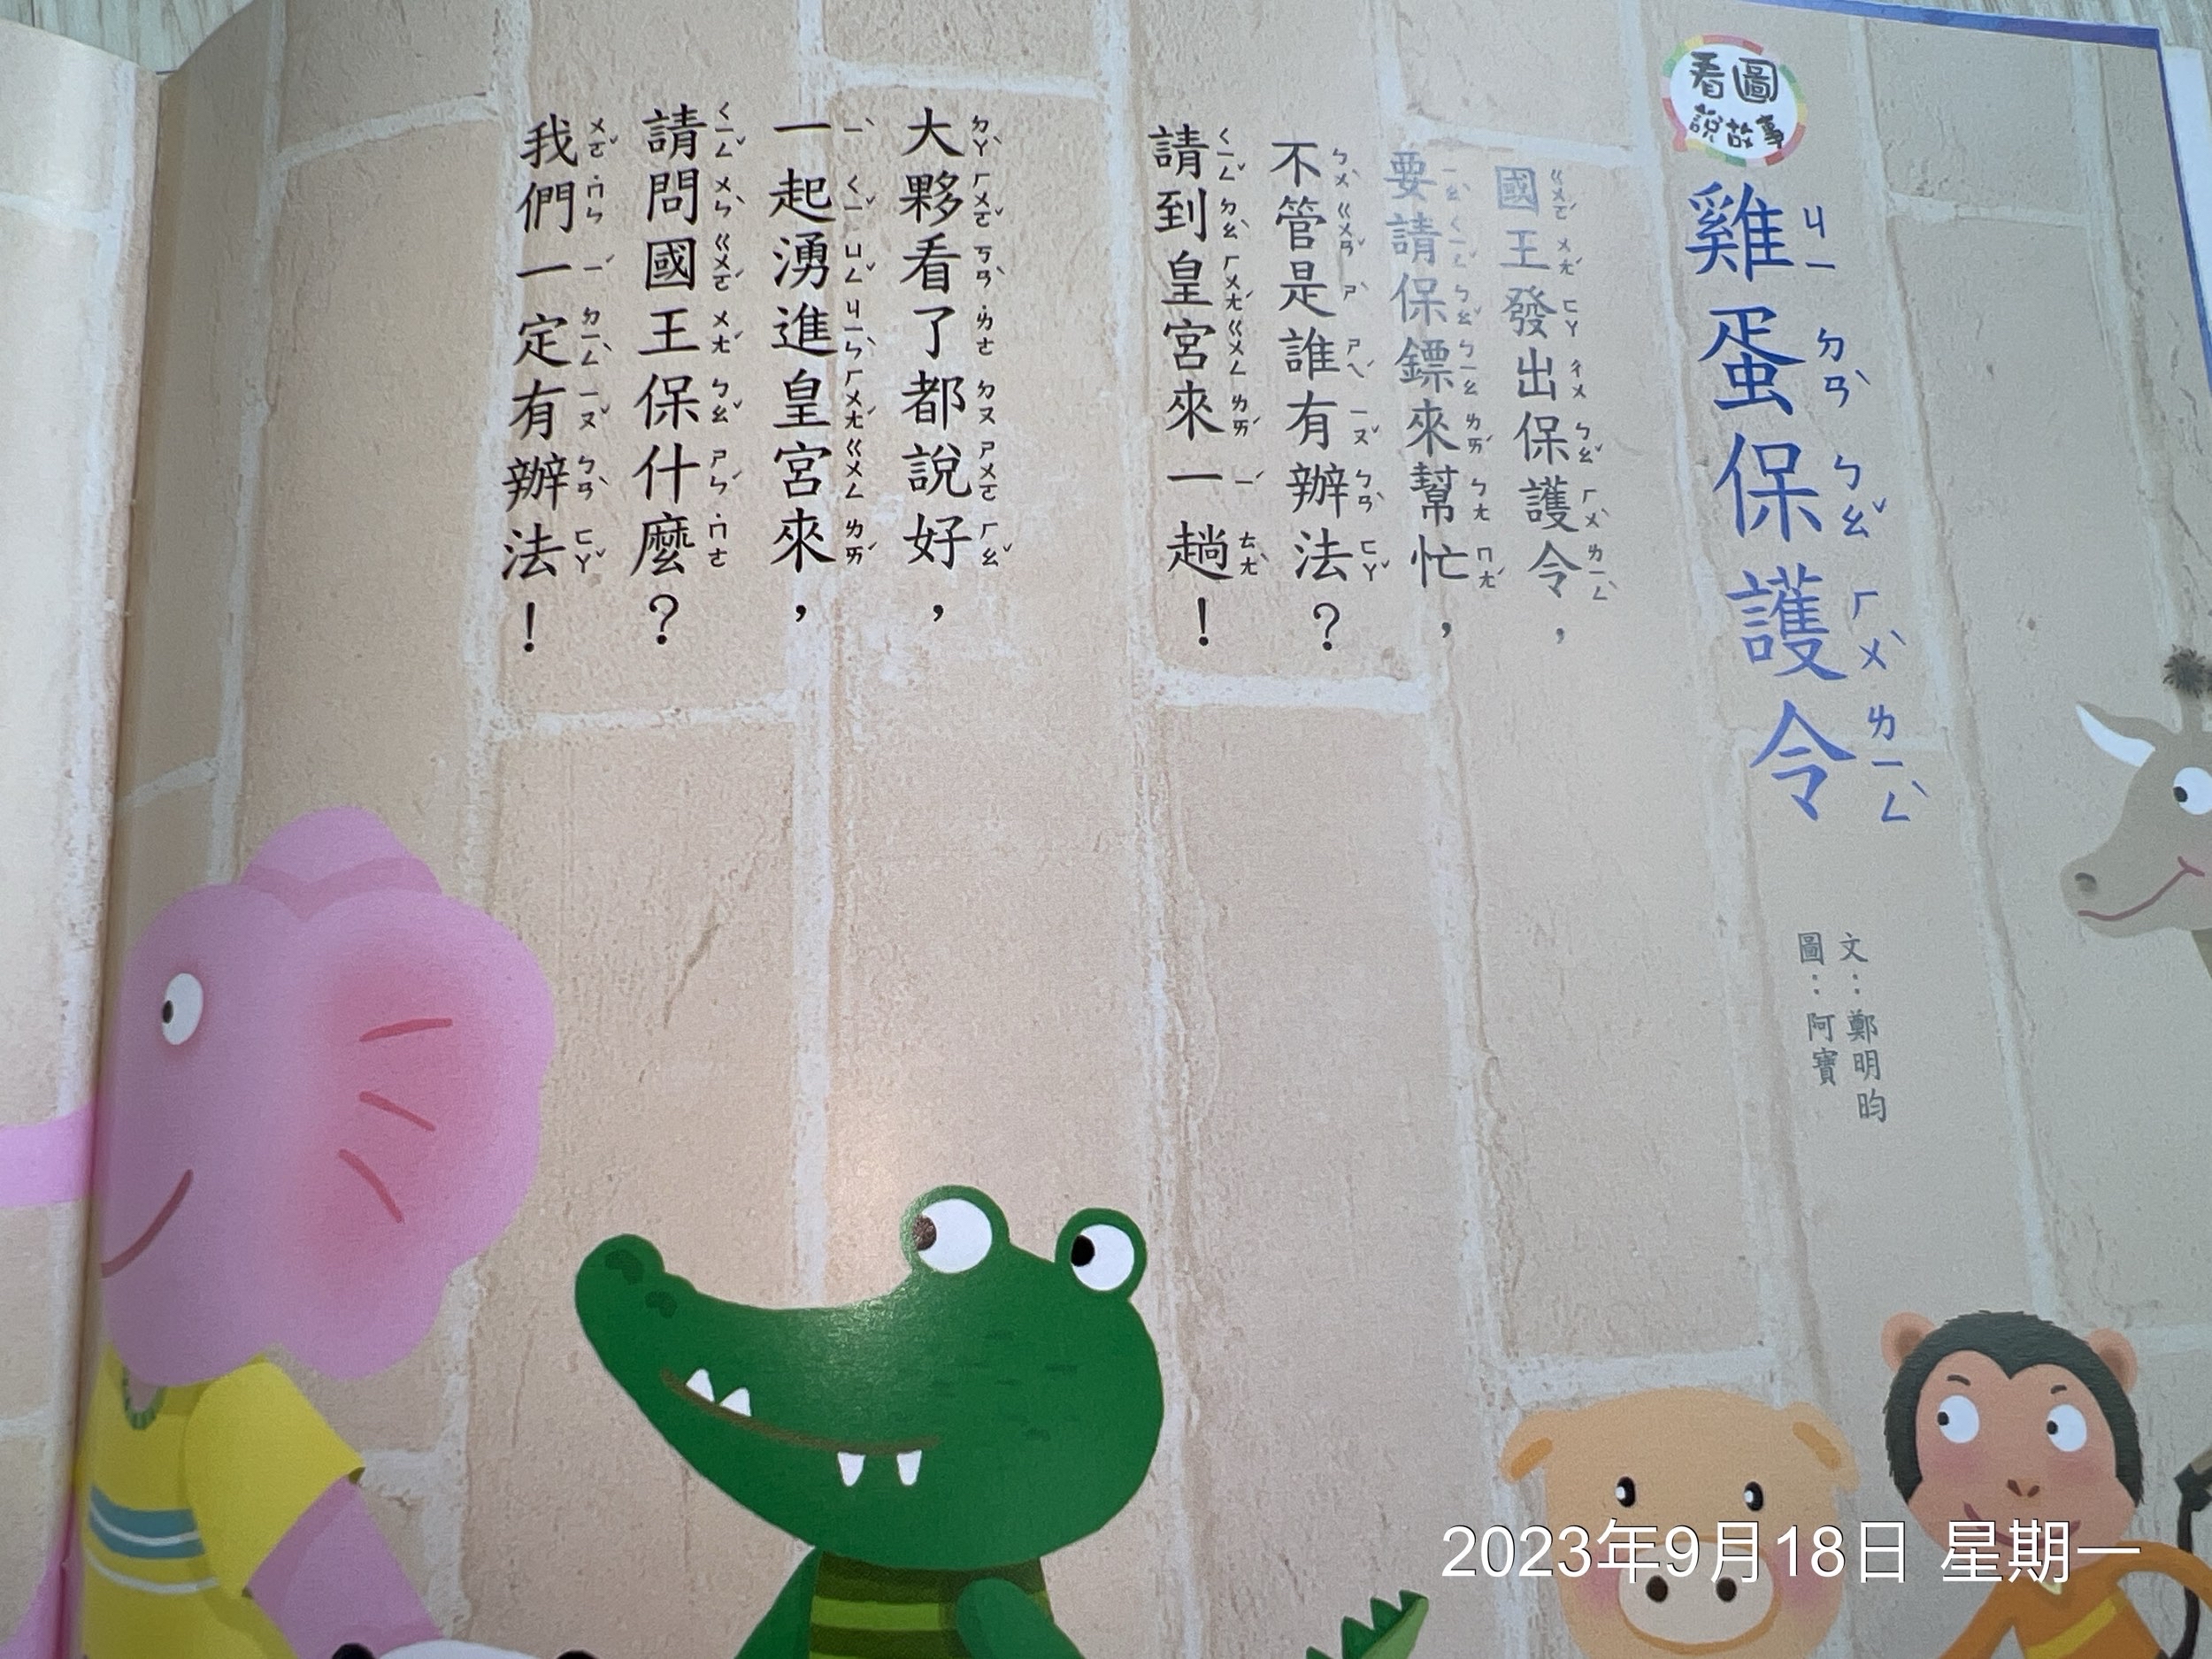 看圖
說故事
雞蛋保護令
文：鄭明昀
圖：阿寶
國王發出保護令，
要請保鏢來幫忙，
不管是誰有辦法？
請到皇宮來一趟！
大夥看了都說好，
一起湧進皇宮來，
請問國王保什麼？
我們一定有辦法！
2023年9月18日 星期一